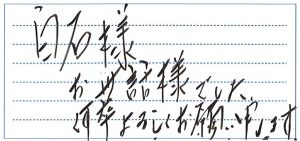 白石様
お世話様でした
何卒よろしくお願い申します